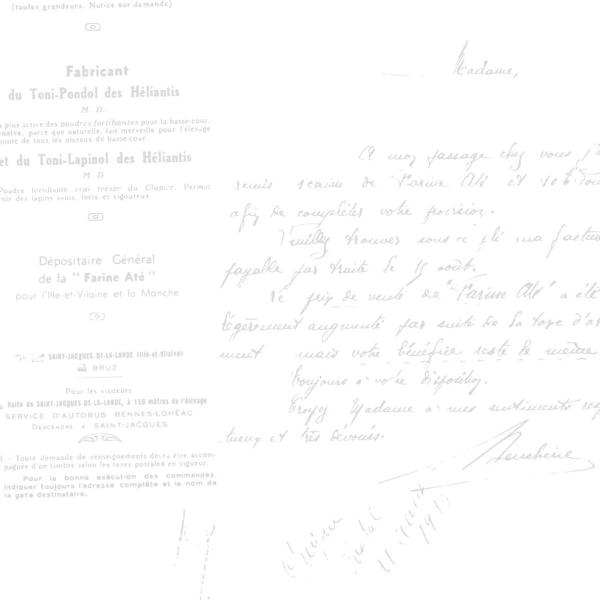 (toutes grandeurs. Notice sur demande)
Fabricant
du Toni-Pondol des Héliantis
M. D.
plus active des poudres fortifiantes pour la basse-cour.
parce que naturelle, fait merveille pour l'élevage
ponte de tous les oiseaux de basse-cour.
et du Toni-Lapinol des Héliantis
M D
Poudre fortifiante vrai trésor du Clapier. Permet
des lapins sains, forts et vigoureux
Dépositaire Général
de la " Farine Até "
pour l'Ille-et-Vilaine et la Manche
SAINT-JACQUES-DE-LA-LANDE (Ille-et-Vilaine)
BRUZ
Pour les visiteurs
Halte de SAINT-JACQUES-DE-LA-LANDE, à 150 mètres de l'élevage
SERVICE D'AUTOBUS RENNES-LOHÉAC
Descendre à SAINT-JACQUES
— Toute demande de renseignements devra être accom-
pagnée d'un timbre selon les taxes postales en vigueur.
Pour la bonne exécution des commandes,
indiquer toujours l'adresse complète et le nom de
la gare destinataire.
Madame,
A mon passage chez vous j'a
remis de Farine Até et
afin de compléter votre provision.
Veuillez trouver sous ce pli ma factur
payable par traite le 15 août.
Le prix de vente de "Farine Até" a été
légèrement augmenté par suite de la taxe d'ar
ment mais votre bénéfice reste le même
Toujours à votre disposition.
Croyez Madame à mes sentiments resp
tueux et très dévoués.